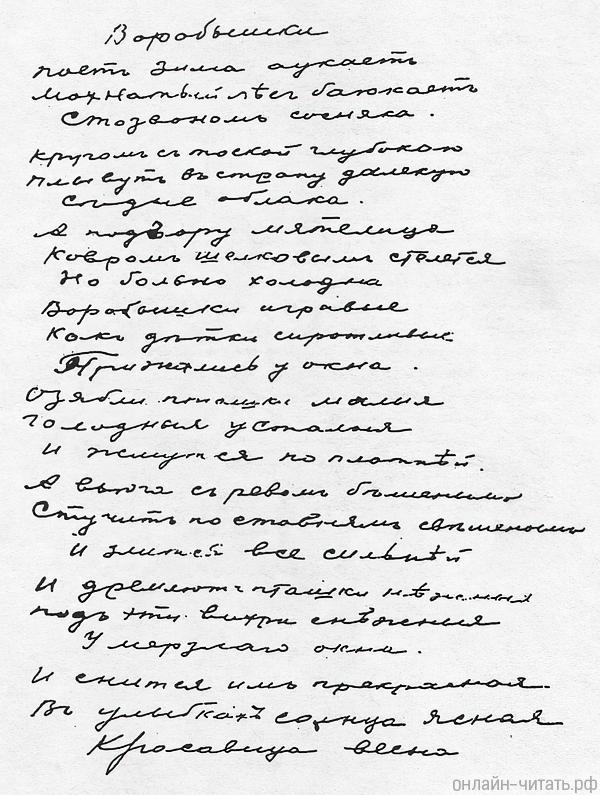 Воробышки
поетъ зима аукаетъ
мохнатый лѣсъ баюкаетъ
Стозвономъ сосняка.
кругомъ съ тоской глубокою
плывутъ въ страну далекую
Сѣдые облака.
А подвору мятелица
Ковромъ шелковымъ стелется
Но больно холодна
Воробышки игравые
Какъ дѣтки сиротливые
Прижались у окна.
Озябли пташки малыя
Голодныя усталыя
И жмутся по плотнѣй.
А вьюга съ ревомъ бѣшенымъ
Стучитъ по ставнямъ свѣшенымъ
И злится все сильнѣй
И дремлютъ пташки нѣжныя
подъ эти вихри снѣжныя
У мерзлаго окна.
И снится имъ прекрасная.
Въ улыбкахъ солнца ясная
Красавица весна
онлайн-читать.рф